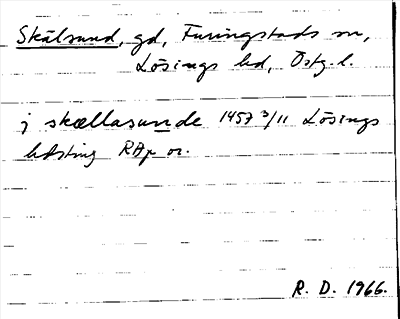 Skälsund, gd, Furingstads sn,
Lösings hd, Östg. l.
j skællasunde 1457 3/11 Lösings
hdsting RAp or.
R. D. 1966.